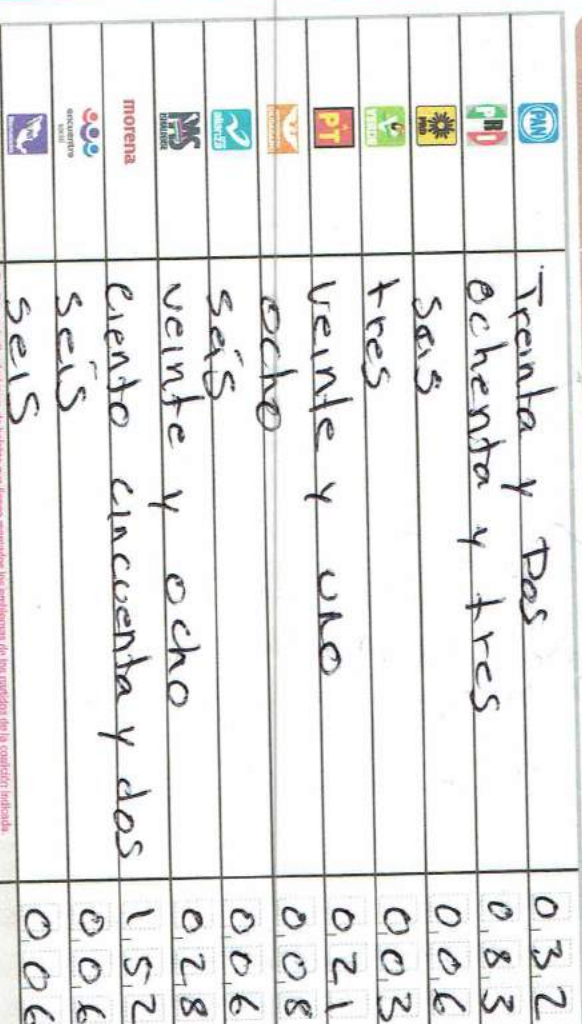 PAN Treinta y Dos 032
PRI ochenta y tres 083
PRD seis 006
VERDE tres 003
PT veinte y uno 021
ocho 008
alianza seis 006
veinte y ocho 028
morena Ciento cincuenta y dos 152
encuentro social seis 006
seis 006
los emblemas de los partidos de la coalición indicada.